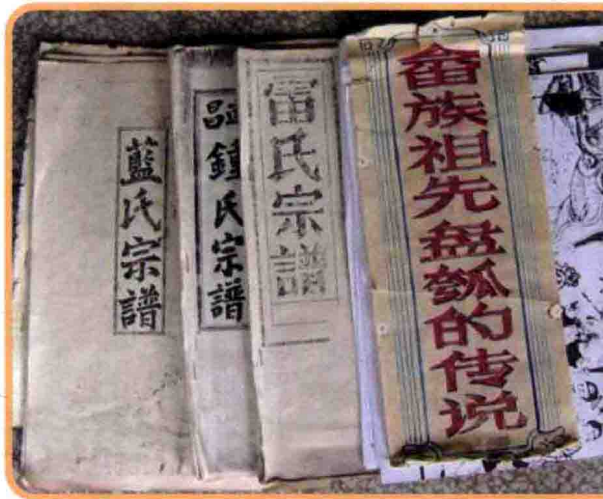 藍氏宗譜
鍾氏宗譜
雷氏宗譜
畲族祖先盘瓠的传说